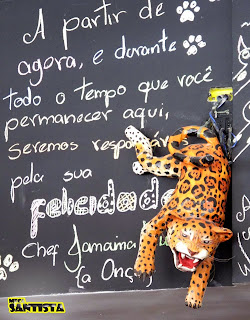 A partir de
agora, e durante
todo o tempo que você
permanecer aqui,
seremos responsáveis
pela sua
felicidade
Chef Jamaima
(a Onça)
SANTISTA